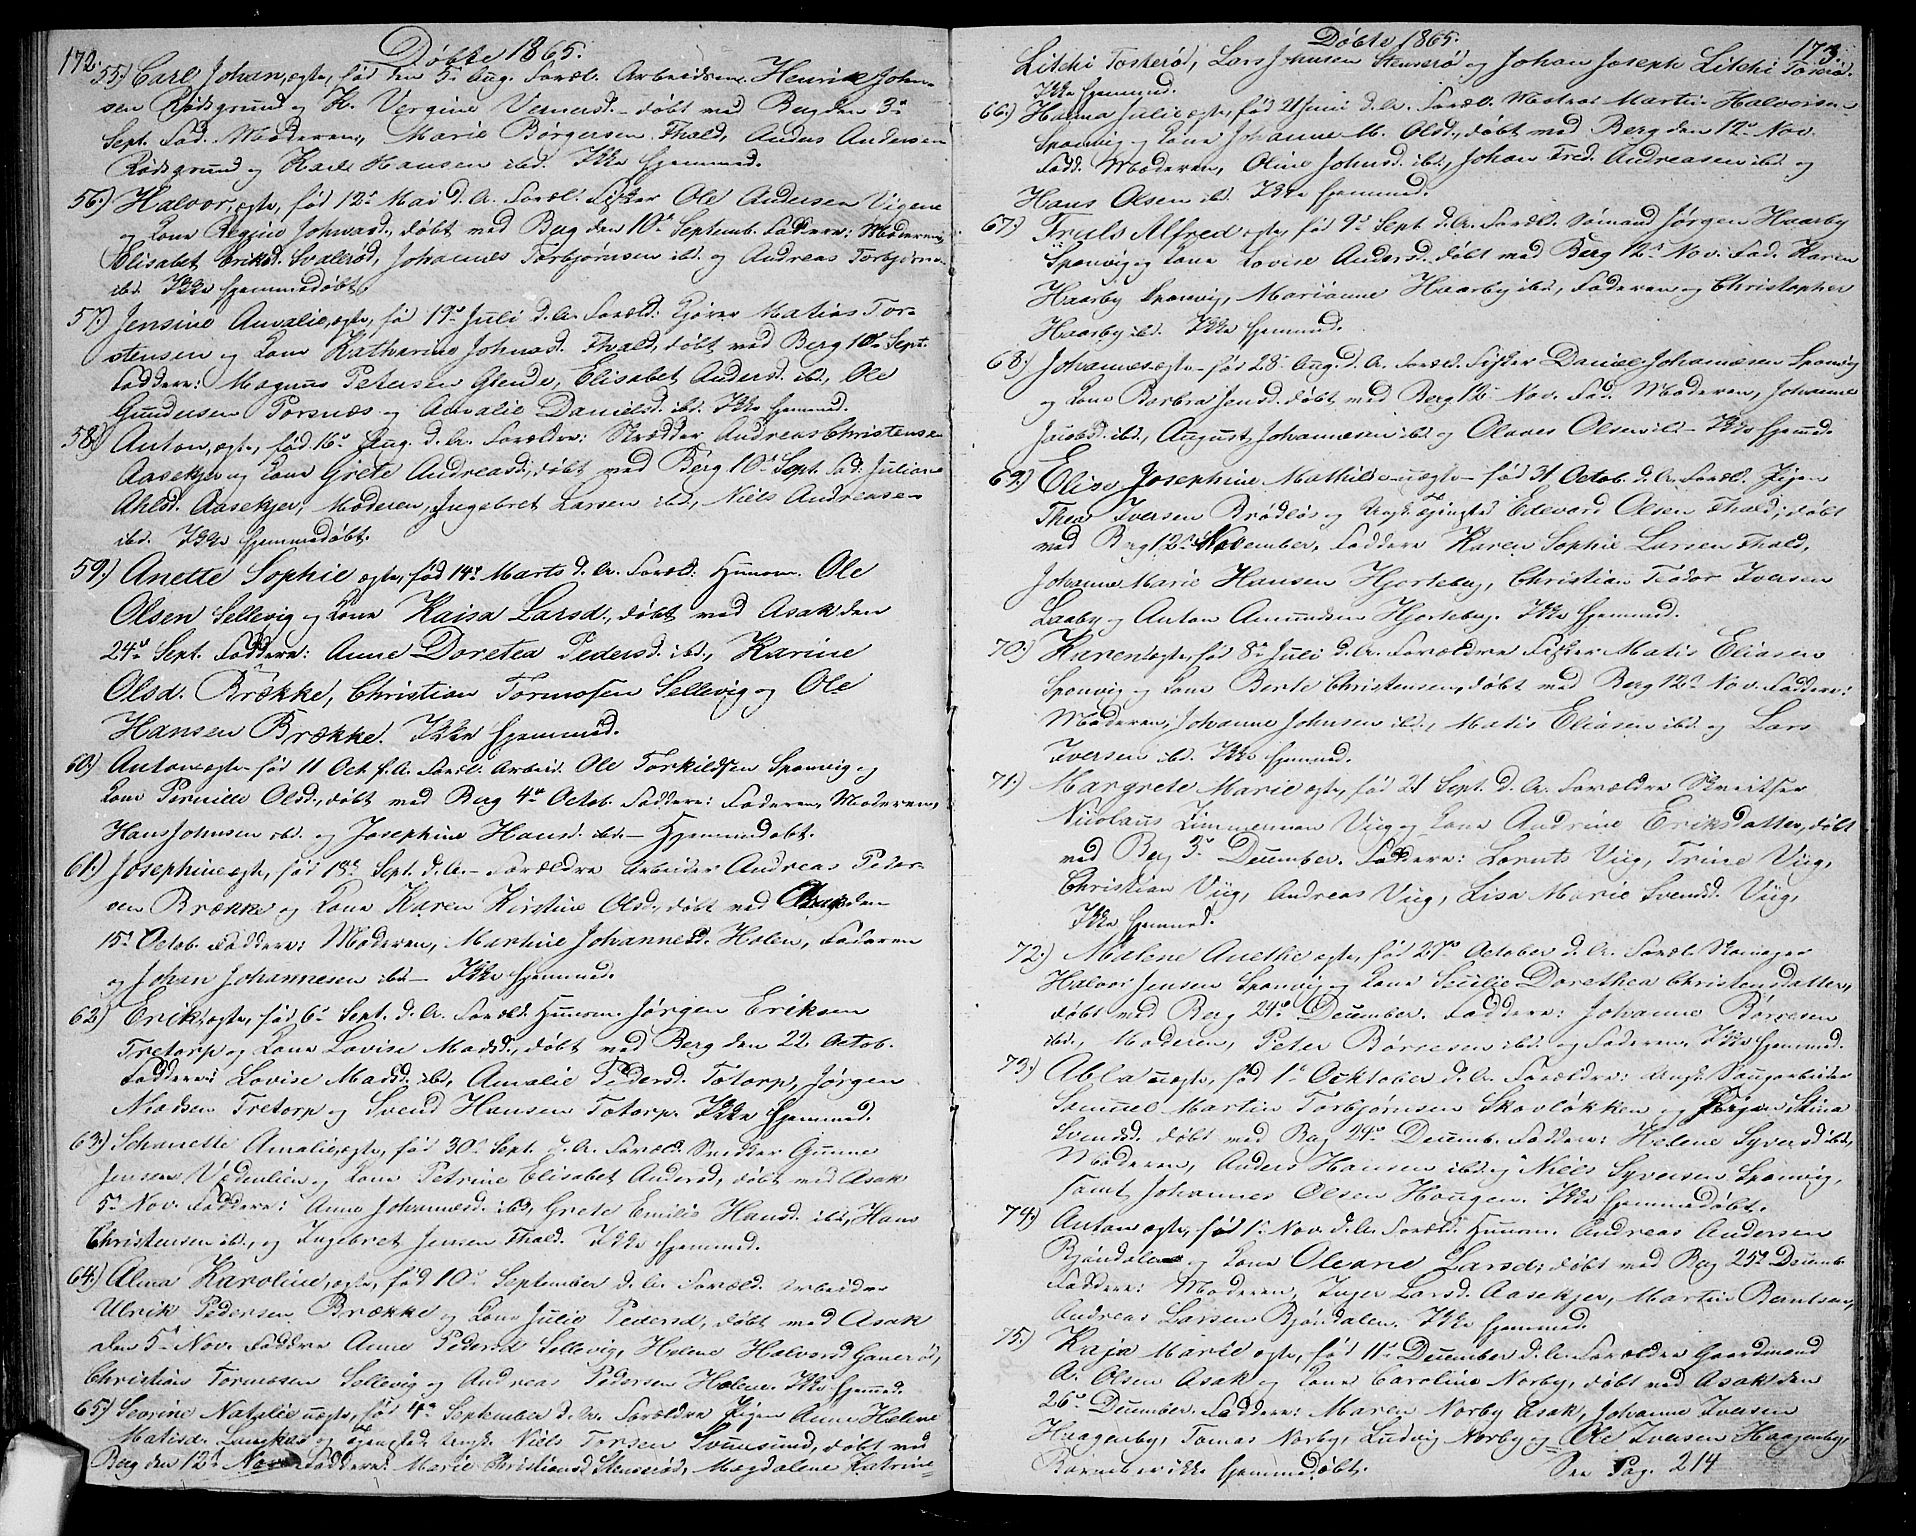 172.
Døbte 1865.
55.) Carl Johan, ægte, fød den 5. Aug. Foræld. Arbeidsm. Henrik John-
sen Rødsgrund og K. Vergine Vernersd. døbt ved Berg den 3e
Sept. Fad. Moderen, Marie Børgersen Fhald, Andus Andersen
Rødsgrund og Karl Hansen ibd. Ikke hjemmed.
56.) Halvor, ægte, fød 12e Mai d. A. Foræl. Fisker Ole Andersen Vigene
og Kone Regine Johnsd., døbt ved Berg den 10e Septemb. Faddere: Moderen,
Elisabet Eriksd. Svalerød, Johannes Torbjørnsen ibd. og Andreas Torbjørns.
ibd. Ikke hjemmedøbt.
57.) Jensine Amalie, ægte, fød 19e Juli d. A. Foræld: Matias Tor-
stensen og Kone Katharine Johnsd. Fhald, døbt ved Berg 10e Sept.
Faddere: Magnus Petersen Glende, Elisabet Andersd. ibd., Ole
Gundersen Torsnæs og Amalie Danielsd. ibd. Ikke hjemmed.
58.) Anton, ægte, fød 16e Aug. d. A. Forældre: Skrædder Andreas Christensen
Aasekjer og Kone Grete Andreasd., døbt ved Berg 10e Sept. Fad: Juliane
Ahlsd. Aasekjer, Moderen, Ingebret Larsen ibd., Niels Andreasen
ibd. Ikke hjemmedøbt.
59.) Anette Sophie ægte, fød 14e Marts d. A. Foræl: Husm. Ole
Olsen Sellevig og Kone Kaisa Larsd., døbt ved Asak den
24e Sept. Faddere: Anne Doretea Pedersd. ibd., Karine
Olsd. Brække, Christian Tormosen Sellevig og Ole
Hansen Brække. Ikke hjemmed.
60.) Anton ægte fød 11 Oct f. A. Foræl. Arbeid. Ole Torkildsen Sponvig og
Kone Pernille Olsd., døbt ved Berg 4e Octob. Faddere: Faderen, Moderen,
Hans Johnsen ibd. og Josephine Hansd. ibd. Hjemmedøbt.
61.) Josephine ægte, fød 18e Sept. d. A. Forældre Arbeider Andreas Peter-
sen Brække og Kone Karen Kirstine Olsd., døbt ved Asak den
15e Octob. Faddere: Moderen, Martine Johannesd. Holen, Faderen
og Johan Johannesen ibd. Ikke hjemmed.
62.) Erik, ægte, fød 6e Sept. d. A. Foræld. Husm. Jørgen Eriksen
Tretorp og Kone Lovise Madsd., døbt ved Berg den 22 Octob.
Faddere: Lovise Madsd. ibd., Amalie Pedersd. Totorp, Jørgen
Madsen Tretorp og Svend Hansen Totorp. Ikke hjemmed.
63.) Amalie, ægte, fød 30e Sept. d. A. Foræld. Snedker Gunne
Jensen og Kone Petrine Elisabet Andersd., døbt ved Asak
5e Nov. Faddere: Anne Johannesd. ibd., Grete Emilie Hansd. ibd., Hans
Christensen ibd., og Ingebret Jensen Fhald. Ikke hjemmed.
64.) Alma Karoline, ægte, fød 10e September d. A. Foræld. Arbeider
Ulrik Pedersen Brække og Kone Julie Pedersd, døbt ved Asak
den 5e Nov. Faddere Anne Pedersd Sellevig, Helene Halvorsd Ganerød,
Christian Tormosen Sellevig og Andreas Pedersen Holene. Ikke hjemmed.
65.) Severine Natalie uægte, fød 4e September d. A. Forældre Pigen Anne Helene
Matisd. og Ungk. Niels Svinesund, døbt ved
Berg den 12e Nov. Faddere: Marie Christiansd Stenserød, Magdalene Katrine
173.
Døbte 1865.
Litchi Torserød, Lars Johnsen Stenserød og Johan Joseph Litchi Torserød.
Ikke hjemmed.
66.) Hanna Julie ægte, fød 21 Juni d. A. Foræl. Matros Martin Halvorsen
Sponvig og Kone Johanne M. Olsd., døbt ved Berg den 12e Nov.
Fadd. Moderen, Oline Johnsd. ibd., Johan Fred. Andreasen ibd og
Hans Olsen ibd. Ikke hjemmed.
67.) Truls Alfred ægte, fød 9e Sept d. A. Foræld. Sømand Jørgen Haarby
Sponvig og Kone Lovise Andersd. døbt ved Berg 12e Nov. Fad. Karen
Haarby Sponvig, Marianne Haarby ibd., Faderen og Christopher
Haarby ibd. Ikke hjemmed.
68.) Johannes ægte fød 28e Aug. d. A. Foræld. Fisker Daniel Johannesen Sponvig
og Kone Barbra Jensd. døbt ved Berg 12e Nov. Fad. Moderen, Johanne
Jacobsd. ibd., August Johannesen ibd og Olaves Olsen ibd. Ikke hjemmd.
69.) Elise Josephine Mathilde uægte fød 31 Octob. d. A. Foræld. Pigen
Thea Iversen Brødløs og Ungk. Edevard Olsen Fhald, døbt
ved Berg 12e November. Faddere Karen Sophie Larsen Fhald,
Johanne Marie Hansen Hjorteberg, Christian Teodor Iversen
Laaby og Anton Amundsen Hjorteberg. Ikke hjemmed.
70.) Karen ægte, fød 8e Juli d. A. Forældre Fisker Matis Eliasen
Sponvig og Kone Berte Christensen, døbt ved Berg 12e Nov. Faddere:
Moderen, Johanne Johnsen ibd., Matis Eliasen ibd. og Lars
Iversen ibd. Ikke hjemmed.
71.) Margrete Marie ægte, fød 21 Sept. d. A. Forældre
Nicolaus Zimmerman Viig og Kone Andrine Eriksdatter, døbt
ved Berg 3e December. Faddere: Lorents Viig, Trine Viig,
Christian Viig, Andreas Viig, Lisa Marie Svensd. Viig,
Ikke hjemmed.
72.) Malene Anethe ægte, fød 27e October d. A. Foræld. Skomager
Halvor Jensen Sponvig og Kone Seeilie Dorethea Christensdatter,
døbt ved Berg 24e December. Faddere: Johanne Børresen
ibd., Moderen, Peter Børresen ibd. og Faderen. Ikke hjemmed.
73.) Abla uægte, fød 1e Ocktober d. A. Forældre: Ungk. Saugarbeider
Samuel Martin Torbjørnsen Skovløkken og Pigen Stina
Svensd. døbt ved Berg 24e Decemb. Faddere: Helene Syversd ibd,
Moderen, Anders Hansen ibd og Niels Syversen Sponvig,
samt Johannes Olsen Haugen. Ikke hjemmedøbt.
74.) Anton ægte, fød 1e Nov. d. A. Foræld. Husm. Andreas Andersen
Bjøndalen og Kone Oleane Larsd, døbt ved Berg 25e Decemb.
Faddere: Moderen, Inger Larsd. Aasekjer, Martin Berntsen,
Andreas Larsen Bjøndalen. Ikke hjemmed.
75.) Kaja Marie ægte, fød 11e December d. A. Forældre Gaardmand
A. Olsen Asak og Kone Caroline Norby, døbt ved Asak den
26e December. Faddere: Maren Norby Asak, Johanne Iversen
Haagenby, Tomas Norby, Ludvig Norby og Ole Iversen Haagenby,
Barnet ikke hjemmedøbt. See Pag. 214